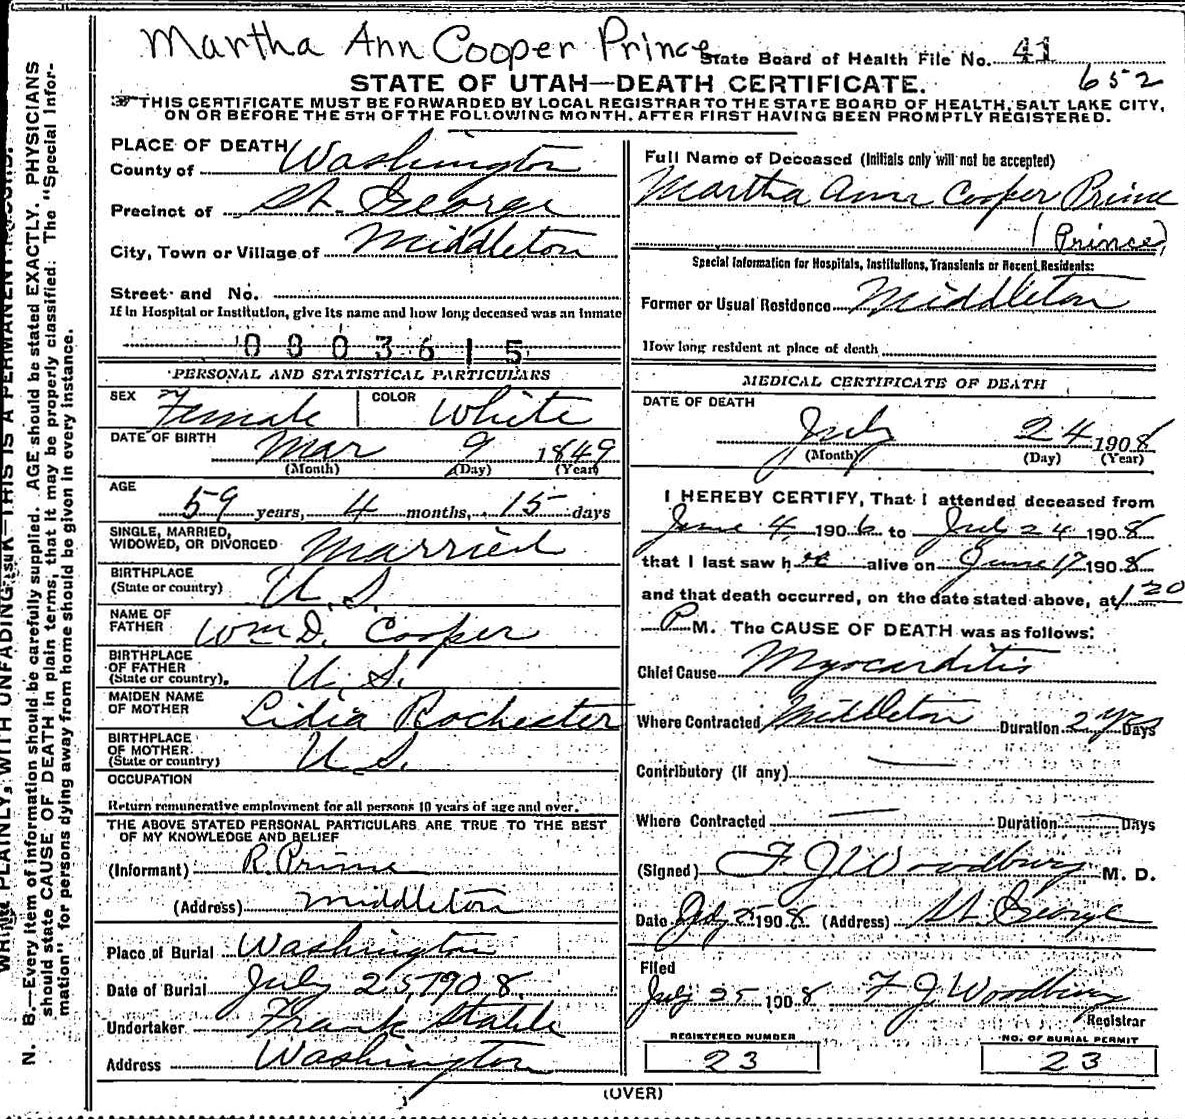 Martha Ann Cooper Prince
State Board of Health File No. 41
652
STATE OF UTAH—DEATH CERTIFICATE.
THIS CERTIFICATE MUST BE FORWARDED BY LOCAL REGISTRAR TO THE STATE BOARD OF HEALTH, SALT LAKE CITY,
ON OR BEFORE THE 5TH OF THE FOLLOWING MONTH, AFTER FIRST HAVING BEEN PROMPTLY REGISTERED.
PLACE OF DEATH
County of Washington
Precinct of St. George
City, Town or Village of Middleton
Street and No.
If in Hospital or Institution, give its name and how long deceased was an inmate
0803615
PERSONAL AND STATISTICAL PARTICULARS
SEX Female COLOR White
DATE OF BIRTH Mar 9 1849
(Month) (Day) (Year)
AGE
59 years, 4 months, 15 days
SINGLE, MARRIED,
WIDOWED, OR DIVORCED Married
BIRTHPLACE
(State or country) U.S.
NAME OF
FATHER Wm D. Cooper
BIRTHPLACE
OF FATHER
(State or country). U.S.
MAIDEN NAME
OF MOTHER Lidia Rochester
BIRTHPLACE
OF MOTHER
(State or country) U.S.
OCCUPATION
Return remunerative employment for all persons 10 years of age and over.
THE ABOVE STATED PERSONAL PARTICULARS ARE TRUE TO THE BEST
OF MY KNOWLEDGE AND BELIEF
(Informant) R. Prince
(Address) Middleton
Place of Burial Washington
Date of Burial July 25, 1908.
Undertaker Frank Stahle
Address Washington
Full Name of Deceased (Initials only will not be accepted)
Martha Ann Cooper Prince
(Prince)
Special Information for Hospitals, Institutions, Transients or Recent Residents:
Former or Usual Residence Middleton
How long resident at place of death
MEDICAL CERTIFICATE OF DEATH
DATE OF DEATH
July 24 1908
(Month) (Day) (Year)
I HEREBY CERTIFY, That I attended deceased from
June 4, 1906 to July 24 1908
that I last saw h alive on June 17 1908
and that death occurred, on the date stated above, at 1 20
P M. The CAUSE OF DEATH was as follows:
Chief Cause Myocarditis
Where Contracted Middleton Duration 2 yrs Days
Contributory (if any) —
Where Contracted — Duration — Days
(Signed) F J Woodbury M. D.
Date July 25 1908 (Address) St George
Filed
July 25 1908 F J Woodbury
Registrar
REGISTERED NUMBER
23
NO. OF BURIAL PERMIT
23
(OVER)
PLAINLY, WITH UNFADING THIS IS A PERMANENT
N. B.—Every item of information should be carefully supplied. AGE should be stated EXACTLY. PHYSICIANS
should state CAUSE OF DEATH in plain terms, that it may be properly classified. The "Special Infor-
mation" for persons dying away from home should be given in every instance.